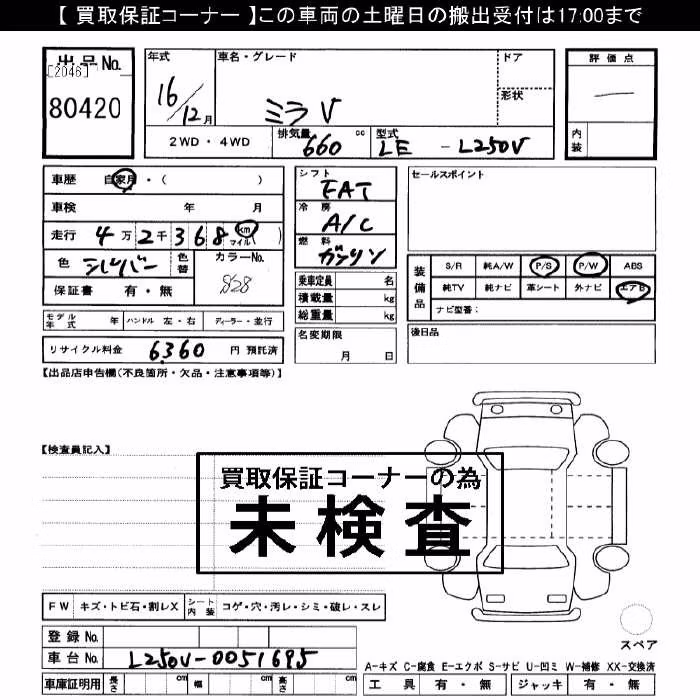 【 買取保証コーナー 】この車両の土曜日の搬出受付は17:00まで
出品No.
[2046]
80420
年式
16/12月
車名・グレード
ミラV
ドア
形状
評価点
一
内装
2WD・4WD
排気量 660 cc
型式 LE - L250V
車歴 自家用・( )
車検 年 月
走行 4万2千368 km マイル ( )
色 シルバー 色替
カラーNo. S28
保証書 有・無
シフト FAT
冷房 A/C
燃料 ガソリン
乗車定員 名
積載量 kg
総重量 kg
セールスポイント
装備品
S/R 純A/W P/S P/W ABS
純TV 純ナビ 革シート 外ナビ エアB
ナビ型番:
モデル年式 年 ハンドル 左・右 ディーラー・並行
リサイクル料金 6,360 円 預託済
名変期限
月 日
後日品
【出品店申告欄(不良箇所・欠品・注意事項等)】
【検査員記入】
買取保証コーナーの為
未検査
FW キズ・トビ石・割レX シート内装 コゲ・穴・汚レ・シミ・破レ・スレ
登録No.
車台No. L250V-0051695
車庫証明用 長さ cm 幅 cm 高さ cm
スペア
A-キズ C-腐食 E-エクボ S-サビ U-凹ミ W-補修 XX-交換済
工具 有・無 ジャッキ 有・無